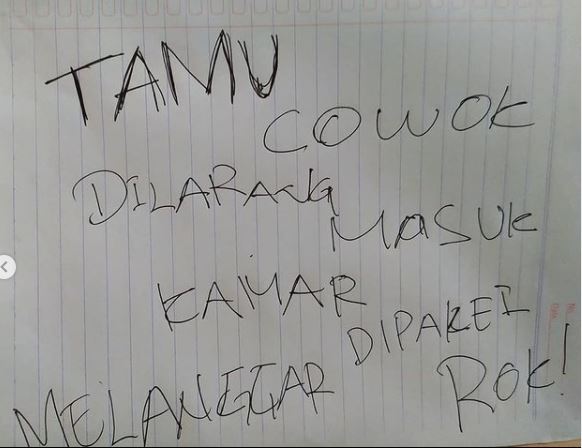 TAMU
COWOK
DILARANG
MASUK
KAMAR
DIPAKEI
MELANGGAR
ROK!